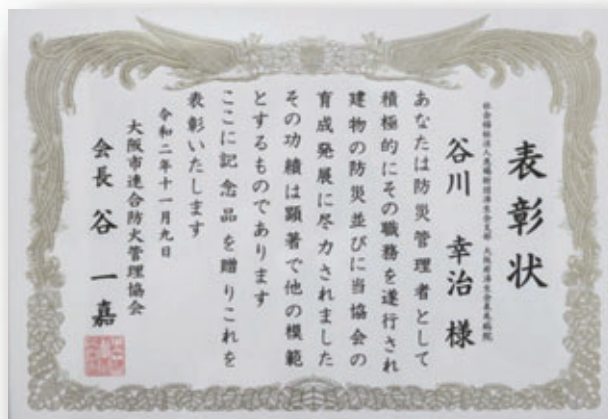 表彰状
社会福祉法人恩賜財団済生会支部 大阪府済生会
谷川 幸治 様
あなたは防災管理者として
積極的にその職務を遂行され
建物の防災並びに当協会の
育成発展に尽力されました
その功績は顕著で他の模範
とするものであります
ここに記念品を贈りこれを
表彰いたします
令和二年十一月九日
大阪市連合防火管理協会
会長 谷 一嘉